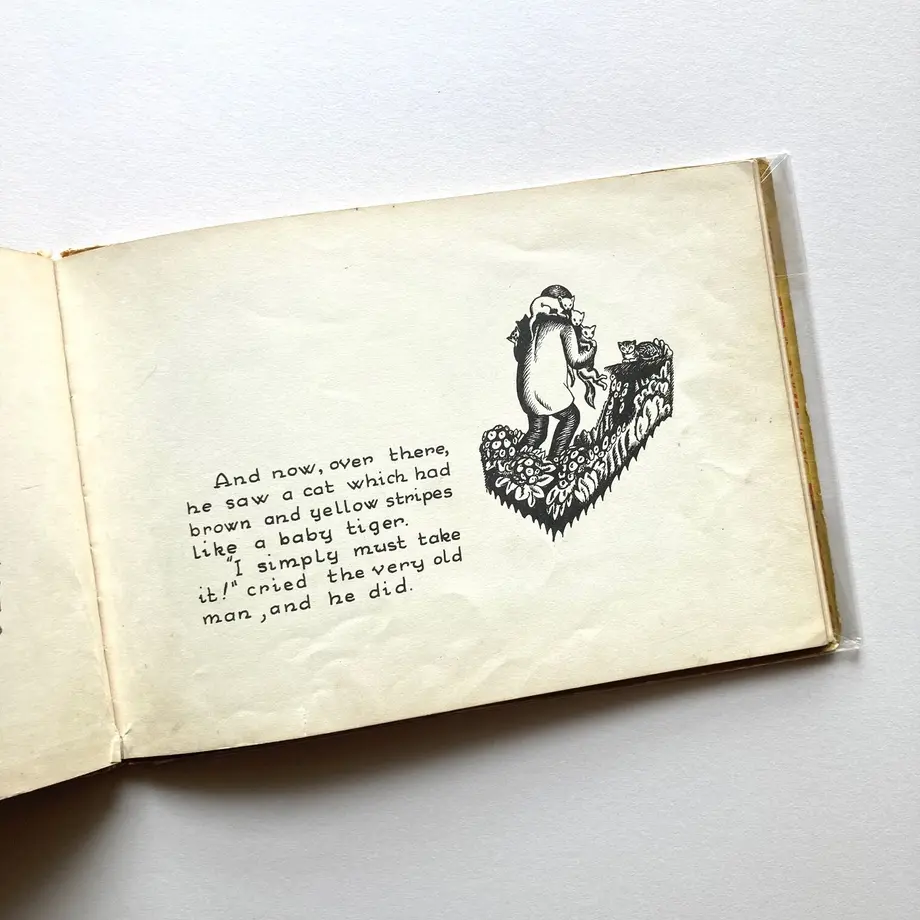 And now, over there,
he saw a cat which had
brown and yellow stripes
like a baby tiger.
"I simply must take
it!" cried the very old
man, and he did.